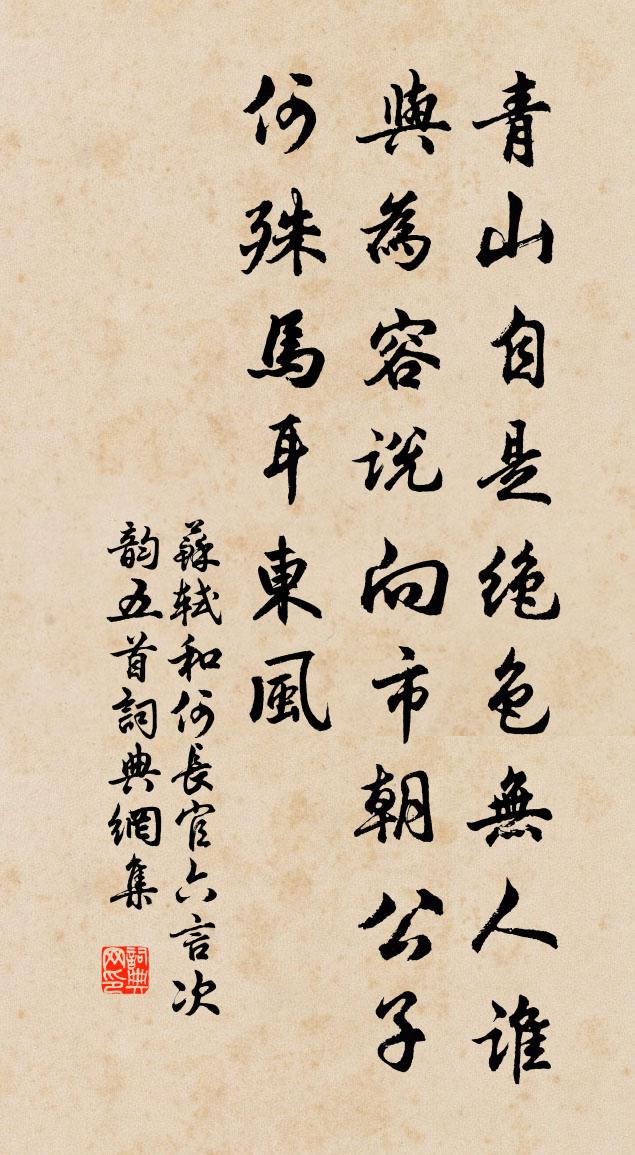 青山自是絕色無人誰
與為容說向市朝公子
何殊馬耳東風
蘇軾和何長官六言次
韵五首詞典網集
詞典网印